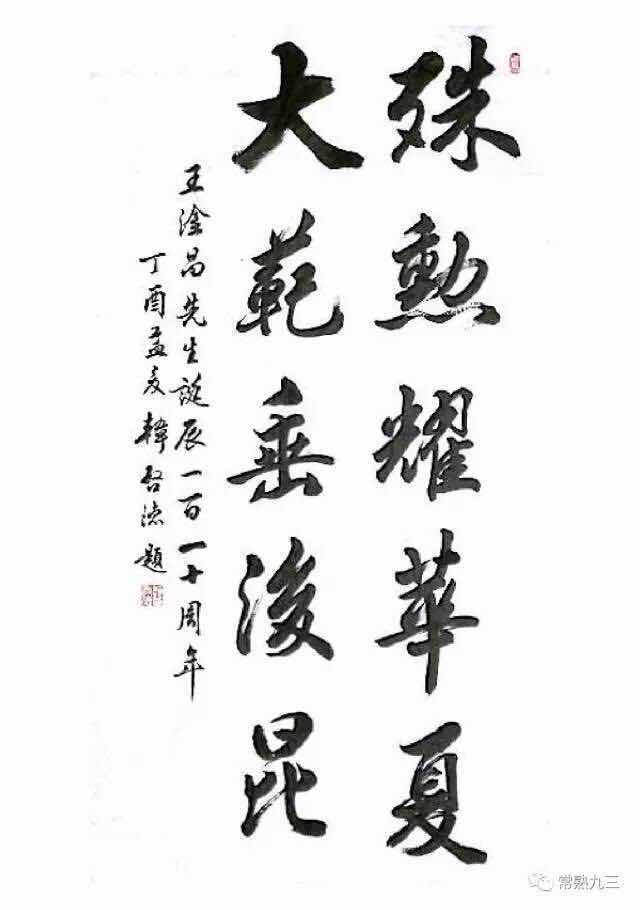 殊勲耀華夏
大範垂後昆
王淦昌先生誕辰一百一十周年
丁酉孟夏韓啓德題
常熟九三